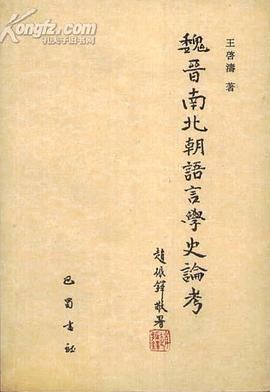 Kongfz.com
孔夫子旧书网
王啓濤 著
魏晋南北朝語言學史論考
趙振鐸敬署
巴蜀書社